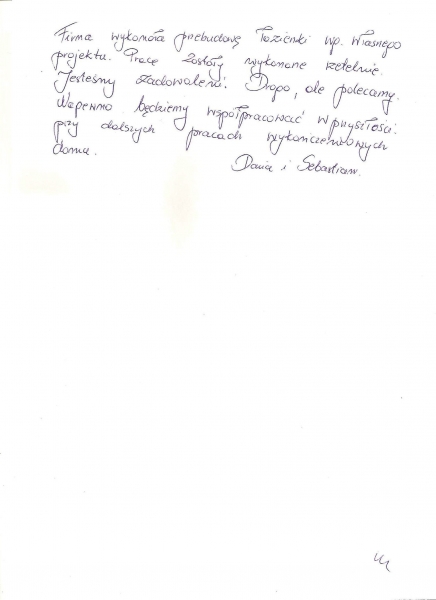 Firma wykonała przebudowę łazienki wp. własnego
projektu. Prace zostały wykonane rzetelnie.
Jesteśmy zadowoleni. Drogo, ale polecamy.
Wzpewno będziemy współpracować wprzyszłości
przy dalszych pracach wykończeniowych
domu.
Daria i Sebastian.